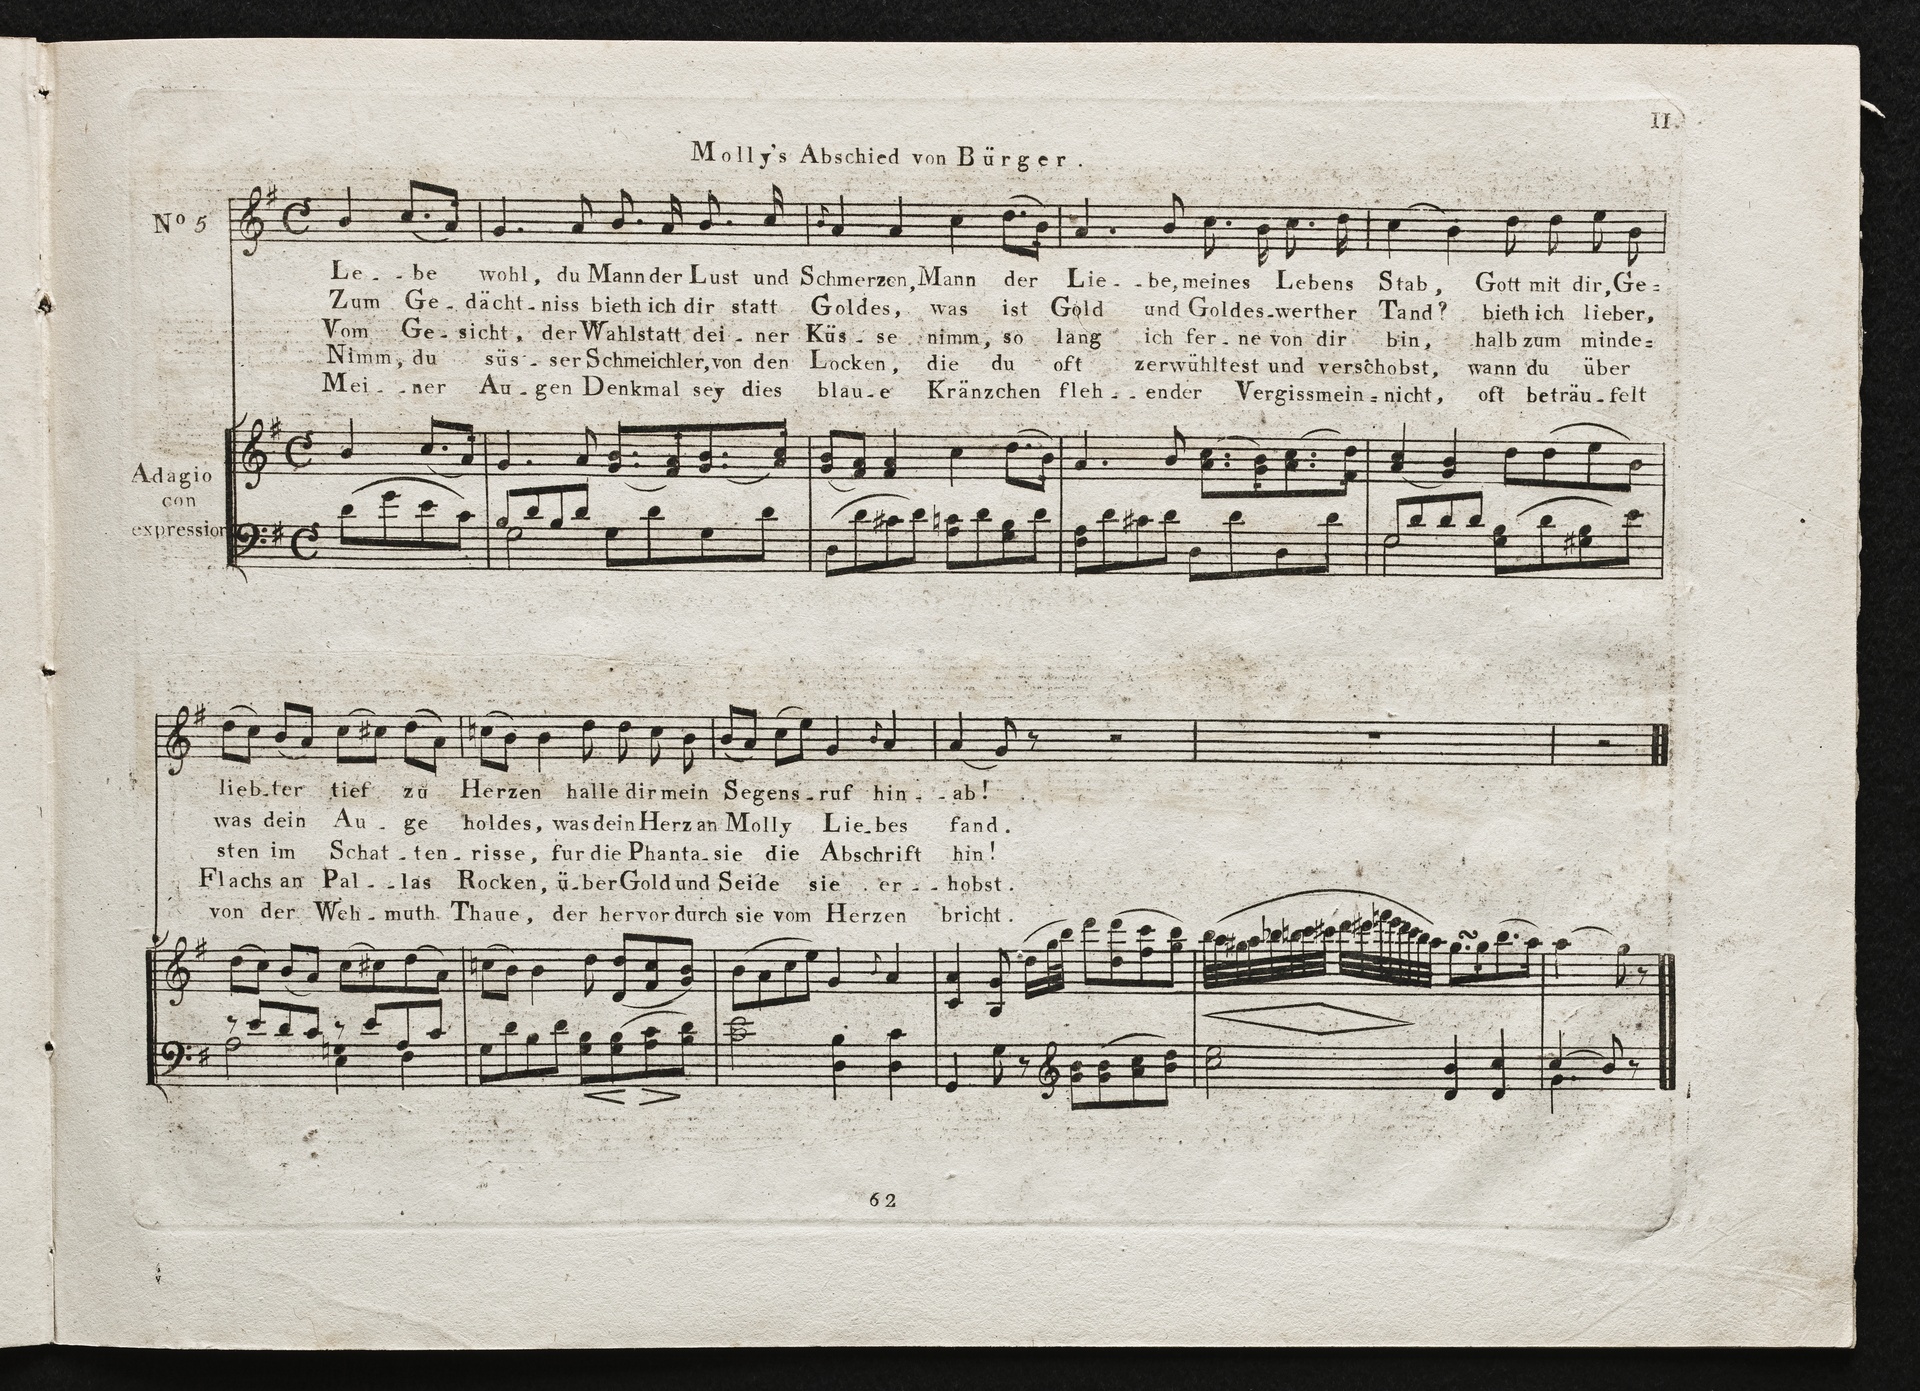 11.
Molly's Abschied von Bürger.
Nº 5
Le - - be wohl, du Mann der Lust und Schmerzen, Mann der Lie - - be, meines Lebens Stab, Gott mit dir, Ge=
Zum Ge - dächt - niss bieth ich dir statt Goldes, was ist Gold und Goldes-werther Tand? bieth ich lieber,
Vom Ge - sicht, der Wahlstatt dei - ner Küs - se nimm, so lang ich fer - ne von dir bin, halb zum minde=
Nimm, du süs - ser Schmeichler, von den Locken, die du oft zerwühltest und verschobst, wann du über
Mei - - ner Au - gen Denkmal sey dies blau - e Kränzchen fleh - - ender Vergissmein = nicht, oft beträu - felt
Adagio
con
expression
lieb-ter tief zu Herzen halle dir mein Segens - ruf hin - - ab!
was dein Au - ge holdes, was dein Herz an Molly Lie-bes fand.
sten im Schat - ten - risse, fur die Phanta - sie die Abschrift hin!
Flachs an Pal - - las Rocken, ü-ber Gold und Seide sie er - - hobst.
von der Weh - muth Thaue, der hervor durch sie vom Herzen bricht.
62